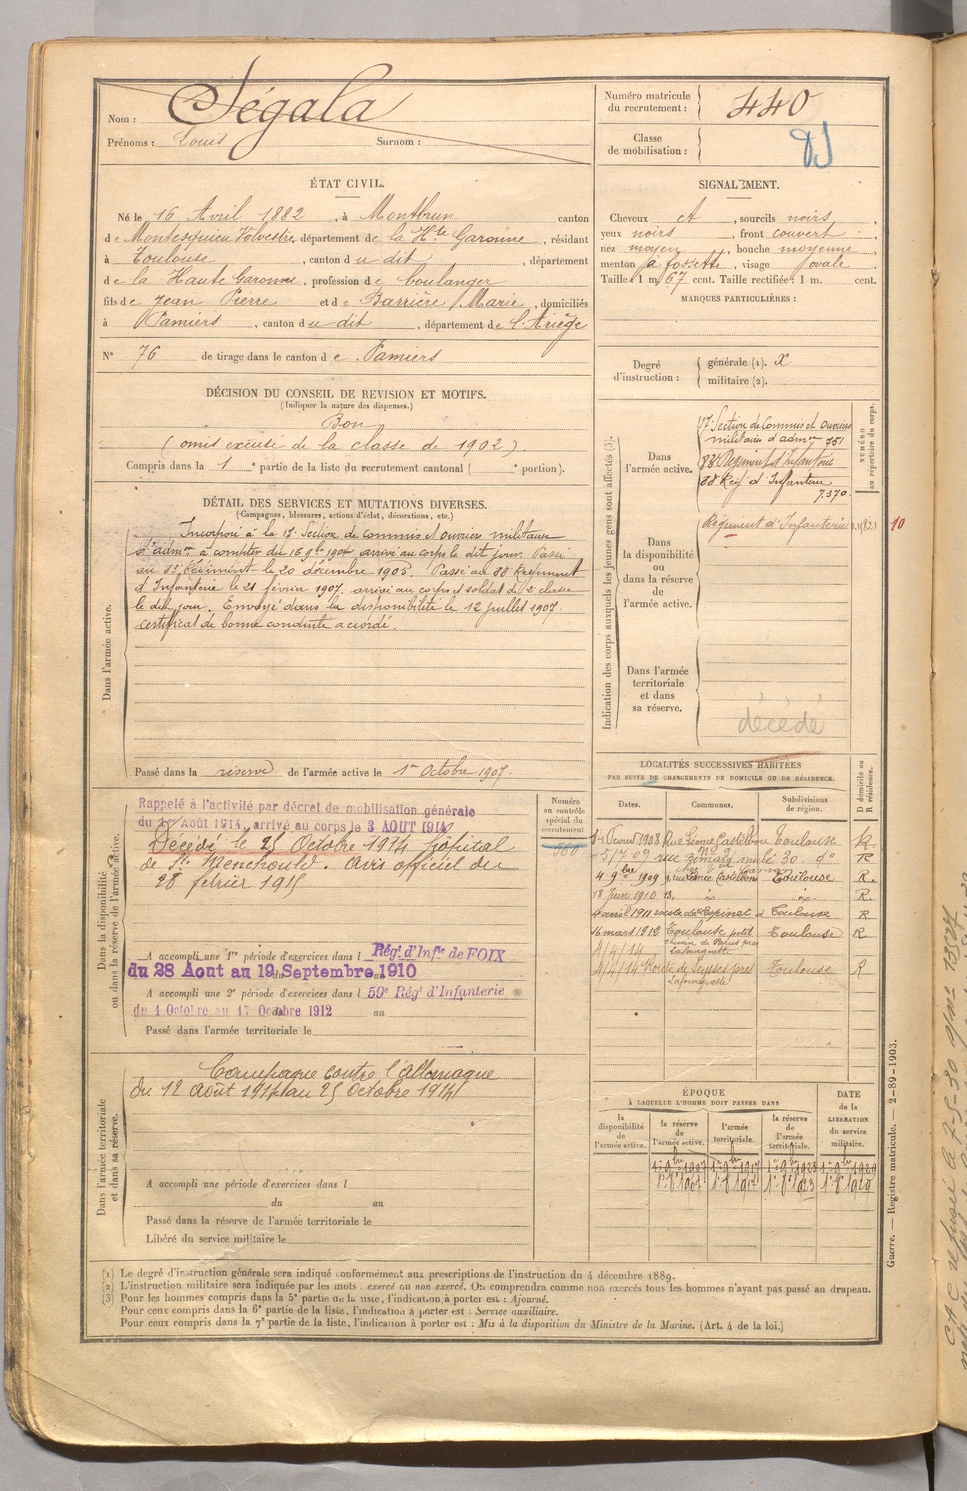 Nom : Ségala
Prénoms : Louis Surnom :
Numéro matricule du recrutement : 440
Classe de mobilisation :
ÉTAT CIVIL.
Né le 16 Avril 1882, à Montbrun canton
de Montesquieu Volvestre, département de la Hte Garonne, résidant
à Toulouse, canton du dit, département
de la Haute Garonne, profession de boulanger
fils de Jean Pierre et de Barrière Marie, domiciliés
à Pamiers, canton du dit, département de l'Ariège
N° 76 de tirage dans le canton de Pamiers
SIGNALEMENT.
Cheveux ct, sourcils noirs,
yeux noirs, front couvert,
nez moyen, bouche moyenne
menton à fossette, visage ovale
Taille : 1 m. 67 cent. Taille rectifiée : 1 m. cent.
MARQUES PARTICULIÈRES :
Degré d'instruction : générale (1). X
militaire (2).
DÉCISION DU CONSEIL DE REVISION ET MOTIFS.
(Indiquer la nature des dispenses.)
Bon
(omis excusé de la classe de 1902)
Compris dans la 1e partie de la liste du recrutement cantonal ( e portion).
DÉTAIL DES SERVICES ET MUTATIONS DIVERSES.
(Campagnes, blessures, actions d'éclat, décorations, etc.)
Dans l'armée active.
Incorporé à la 17e Section de commis et ouvriers militaires
d'admon à compter du 16 9bre 1904 arrivé au corps le dit jour. Passé
au 83e Régiment le 20 décembre 1905. Passé au 88 Régiment
d'Infanterie le 21 février 1907. arrivé au corps et soldat de 2e classe
le dit jour. Envoyé dans la disponibilité le 12 juillet 1907.
certificat de bonne conduite accordé.
Passé dans la réserve de l'armée active le 1er Octobre 1907.
Indication des corps auxquels les jeunes gens sont affectés (3).
NUMÉRO au répertoire du corps.
Dans l'armée active.
17 Section de Commis et Ouvriers
militaires d'admon 751
88 Régiment d'Infanterie
88 Reg d'Infanterie
7.370
Dans la disponibilité ou dans la réserve de l'armée active.
Régiment d'Infanterie
10
Dans l'armée territoriale et dans sa réserve.
décédé
Dans la disponibilité ou dans la réserve de l'armée active.
Rappelé à l'activité par décret de mobilisation générale
du 1er Août 1914, arrivé au corps le 3 AOUT 1914
Décédé le 25 Octobre 1914 hôpital
de Ste Menehould. Avis officiel du
28 février 1915
A accompli une 1re période d'exercices dans l Rég.t d'Inf.ie de FOIX
du 28 Aout au 19 Septembre 1910
A accompli une 2e période d'exercices dans l 59e Rég.t d'Infanterie
du 1 Octobre au 17 Octobre 1912 au
Passé dans l'armée territoriale le
Numéro au contrôle spécial du recrutement
LOCALITÉS SUCCESSIVES HABITÉES
PAR SUITE DE CHANGEMENTS DE DOMICILE OU DE RÉSIDENCE.
D domicile ou R résidence.
Dates. Communes. Subdivisions de région.
Toulouse R
R
4 9bre 1909 Toulouse R.
18 Juin 1910 R.
4 avril 1911 Toulouse R
16 mars 1912 Toulouse petit Toulouse R
4/4/14 chemin de Papus près
Lafourguette
4/4/14 Route de Seysses près Toulouse R
Lafourguette
Dans l'armée territoriale et dans sa réserve.
Campagne contre l'Allemagne
du 12 Août 1914 au 25 Octobre 1914
A accompli une période d'exercices dans l
du au
Passé dans la réserve de l'armée territoriale le
Libéré du service militaire le
ÉPOQUE
À LAQUELLE L'HOMME DOIT PASSER DANS
DATE de la LIBÉRATION du service militaire.
la disponibilité de l'armée active.
la réserve de l'armée active.
l'armée territoriale.
la réserve de l'armée territoriale.
Guerre. — Registre matricule. — 2-89-1903.
(1) Le degré d'instruction générale sera indiqué conformément aux prescriptions de l'instruction du 4 décembre 1889.
(2) L'instruction militaire sera indiquée par les mots : exercé ou non exercé. On comprendra comme non exercés tous les hommes n'ayant pas passé au drapeau.
(3) Pour les hommes compris dans la 5e partie de la liste, l'indication à porter est : Ajourné.
Pour ceux compris dans la 6e partie de la liste, l'indication à porter est : Service auxiliaire.
Pour ceux compris dans la 7e partie de la liste, l'indication à porter est : Mis à la disposition du Ministre de la Marine. (Art. 4 de la loi.)